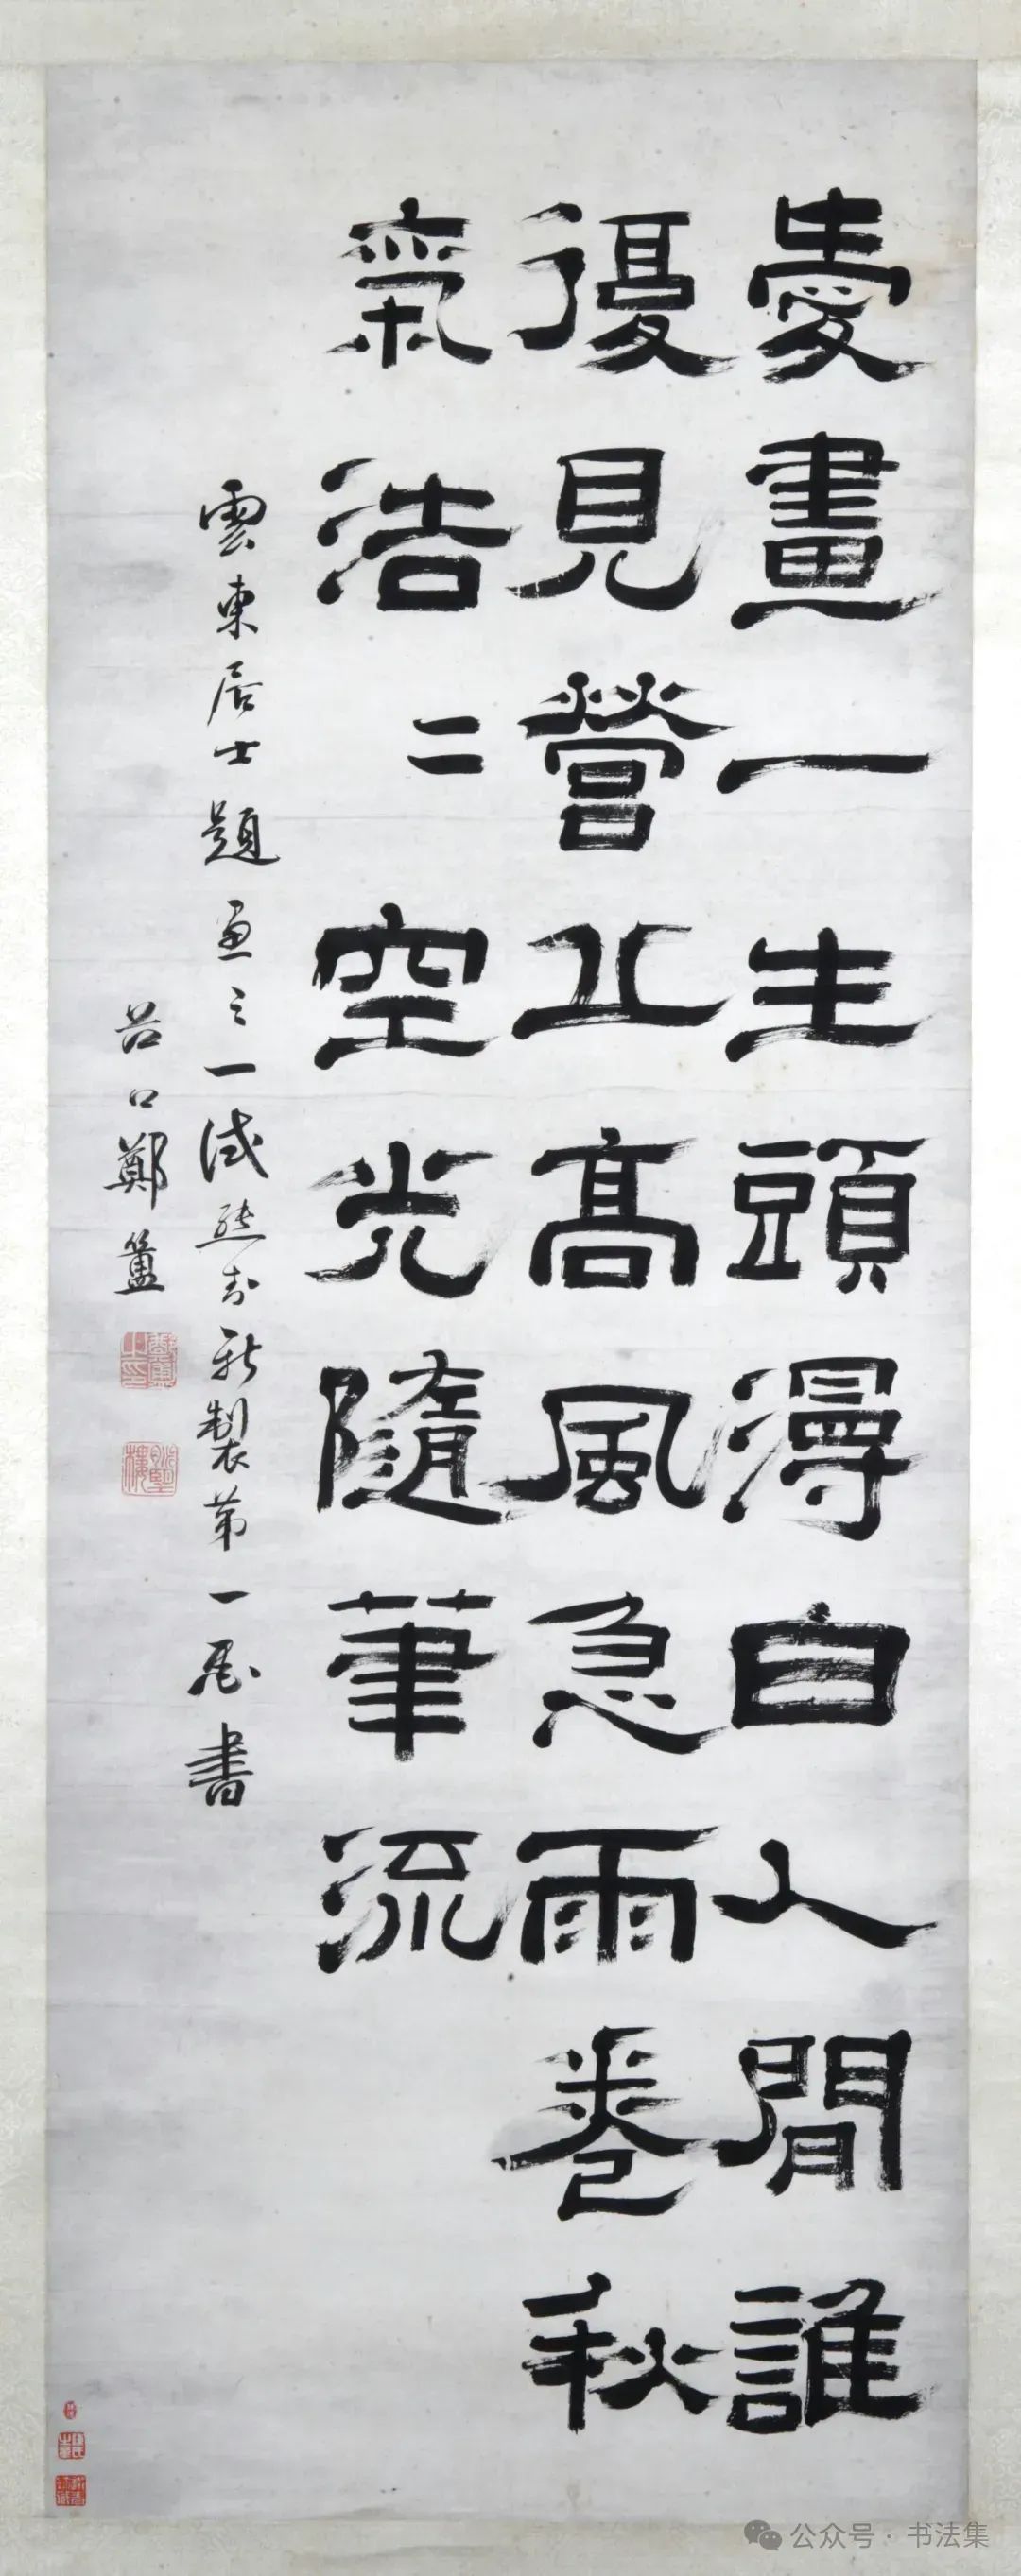 憂畫一生頭漫白人間誰
復見營丘高風急雨卷秋
氣浩二空光隨筆流
雲東居士題畫之一試熊古新製第一墨書
谷口鄭簠
公众号·书法集